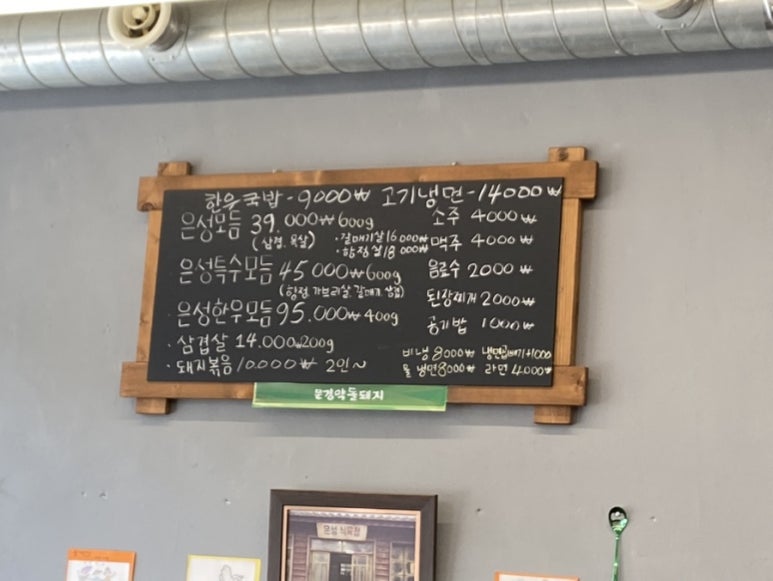 한우국밥-9000₩ 고기냉면-14000₩
은성모듬 39.000₩ 600g
(삼겹.목살)
·갈매기살 16000₩
·항정살 18000₩
은성특수모듬 45000₩ 600g
(항정.가브리살.갈매기.삼겹)
은성한우모듬 95.000₩ 400g
·삼겹살 14.000₩ 200g
·돼지볶음 10000₩ 2인~
소주 4000₩
맥주 4000₩
음료수 2000₩
된장찌개 2000₩
공기밥 1000₩
비냉 8000₩ 냉면곱빼기+1000
물냉면 8000₩ 라면 4000₩
문경약돌돼지
은성식육점